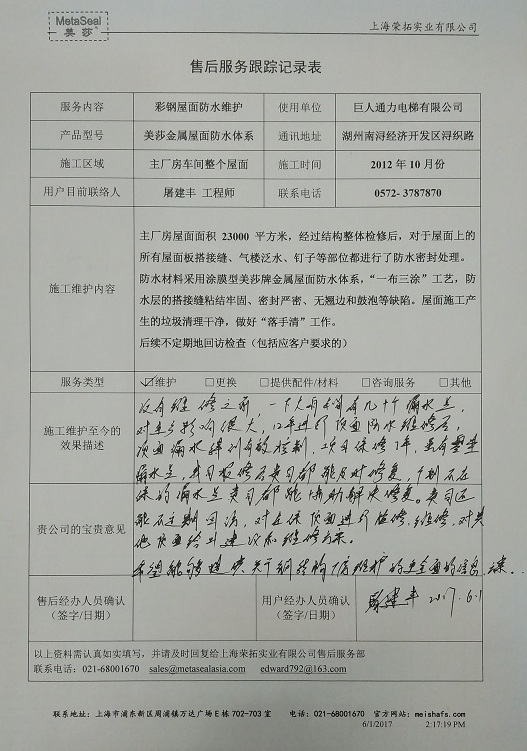 MetaSeal
美莎
上海荣拓实业有限公司
售后服务跟踪记录表
服务内容 彩钢屋面防水维护 使用单位 巨人通力电梯有限公司
产品型号 美莎金属屋面防水体系 通讯地址 湖州南浔经济开发区浔织路
施工区域 主厂房车间整个屋面 施工时间 2012 年 10 月份
用户目前联络人 屠建丰 工程师 联系电话 0572- 3787870
施工维护内容
主厂房屋面面积 23000 平方米，经过结构整体检修后，对于屋面上的
所有屋面板搭接缝、气楼泛水、钉子等部位都进行了防水密封处理。
防水材料采用涂膜型美莎牌金属屋面防水体系，“一布三涂”工艺，防
水层的搭接缝粘结牢固、密封严密、无翘边和鼓泡等缺陷。屋面施工产
生的垃圾清理干净，做好“落手清”工作。
后续不定期地回访检查（包括应客户要求的）
服务类型 ☑维护 □更换 □提供配件/材料 □咨询服务 □其他
施工维护至今的
效果描述
没有维修之前，一下大雨有几十个漏水点，
对生产影响很大，12年进行顶面防水维修后，
顶面漏水得到有效控制，
漏水点，贵司都能及时修复，
保的漏水点贵司都能协助解决修复。贵司还
贵公司的宝贵意见
能不定期回访，对在保顶面进行检修、维修，对其
他顶面给出建议和维修方案。
希望能够提供关于钢结构厂房维护的更全面的信息
售后经办人员确认
（签字/日期）
用户经办人员确认
（签字/日期）
屠建丰 2017.6.1
以上资料需认真如实填写，并请及时回复给上海荣拓实业有限公司售后服务部
联系电话：021-68001670 sales@metasealasia.com edward792@163.com
联系地址：上海市浦东新区周浦镇万达广场 E 栋 702-703 室 电话：021-68001670 官方网站：meishafs.com
6/1/2017 2:17:19 PM